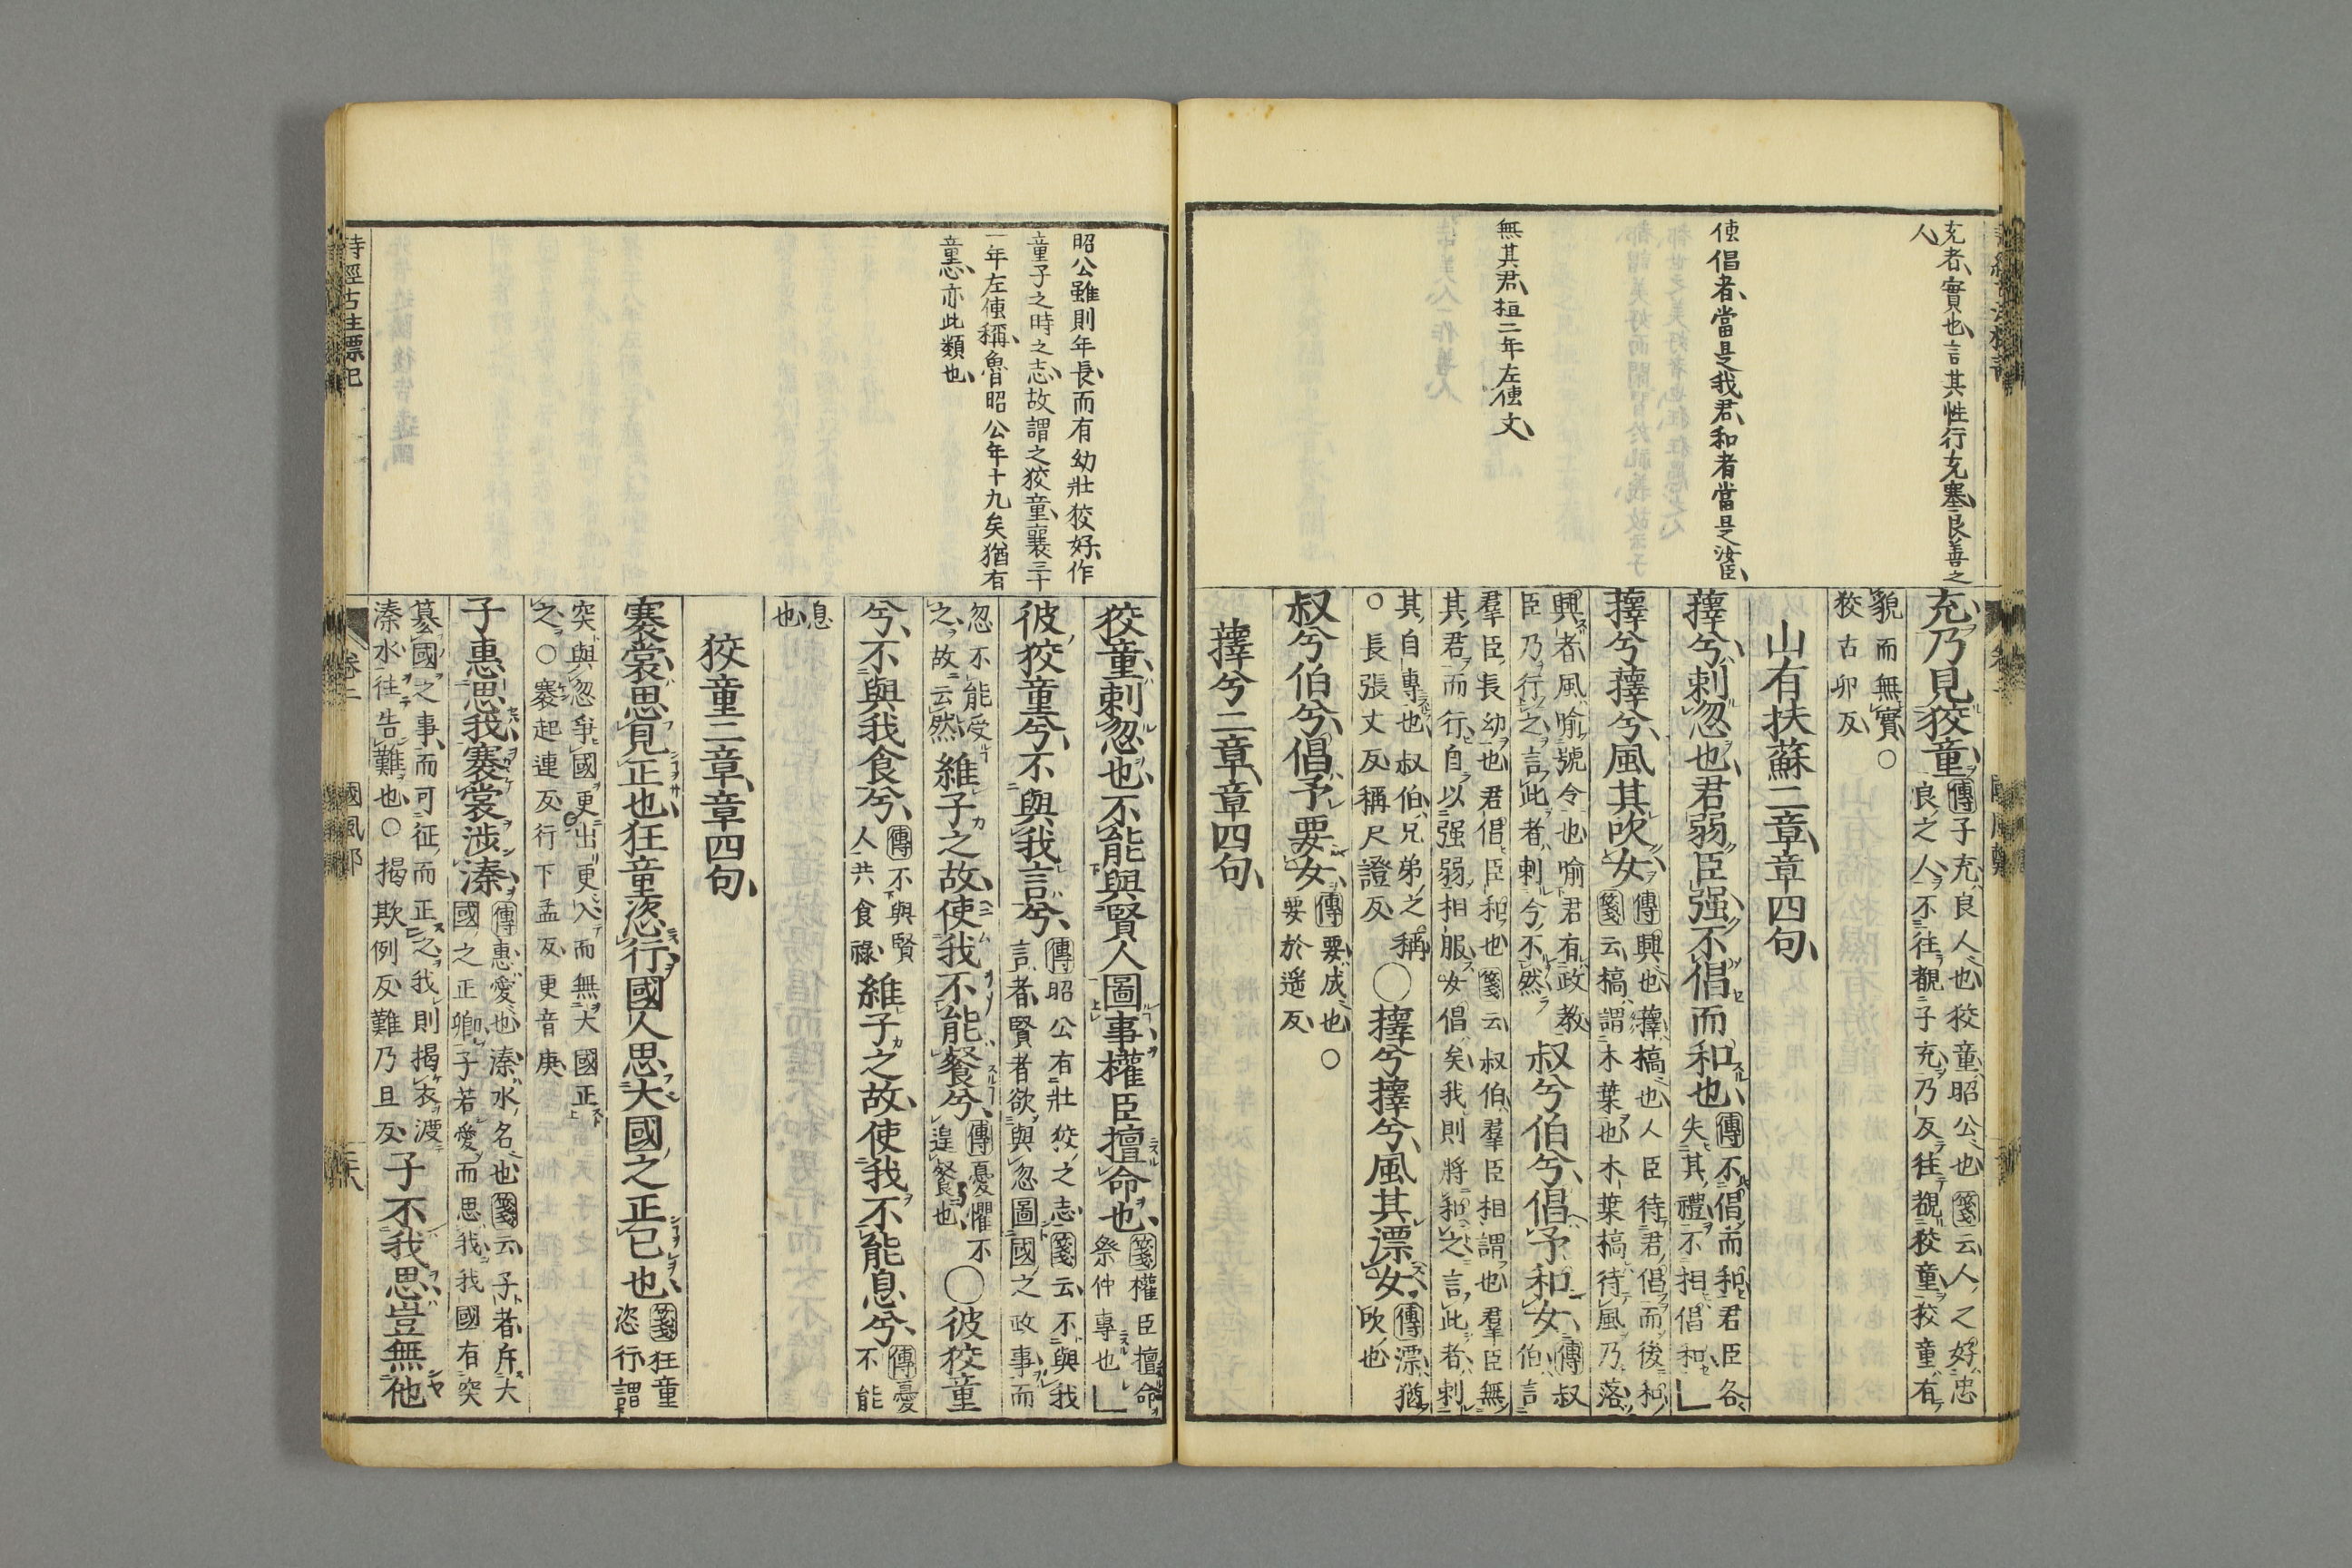 充者、實也、言其性行充塞、良善之
人、
使倡者、當是我君、和者當是汝臣、
無其君、桓二年左傳文、
充、乃見狡童、傳子充、良人也、狡童、昭公也、箋云、人之好忠
良之人、不往覩子充、乃反往覩狡童、狡童有
貌而無實、○
狡古卯反、
山有扶蘇二章、章四句、
蘀兮、刺忽也、君弱臣强、不倡而和也、傳不倡而和、君臣各
失其禮、不相倡和、
蘀兮蘀兮、風其吹女、傳興也、蘀、槁也、人臣待君倡而後和、
箋云、槁、謂木葉也、木葉槁、待風乃落、
興者、風喻號令也、喻君有政教、
臣乃行之、言此者、刺今不然、
叔兮伯兮、倡予和女、傳叔伯、言
羣臣長幼也、君倡臣和也、箋云、叔伯、羣臣相謂也、羣臣無
其君而行、自以强弱相服、女倡矣、我則將和之、言此者、刺
其自專也、叔伯、兄弟之稱、
○長張丈反、稱尺證反、
○蘀兮蘀兮、風其漂女、傳漂、猶
吹也、
叔兮伯兮、倡予要女、傳要、成也、○
要於遙反、
蘀兮二章、章四句、
昭公雖則年長、而有幼壯狡好、作
童子之時之志、故謂之狡童、襄三十
一年左傳稱、魯昭公年十九矣、猶有
童心、亦此類也、
狡童、刺忽也、不能與賢人圖事、權臣擅命也、箋權臣擅命、
祭仲專也、
彼狡童兮、不與我言兮、傳昭公有壯狡之志、箋云、不與我
言者、賢者欲與忽圖國之政事、而
忽不能受
之、故云然、
維子之故、使我不能餐兮、傳憂懼不
遑餐也、
○彼狡童
兮、不與我食兮、傳不與賢
人共食祿、
維子之故、使我不能息兮、傳憂
不能
息
也、
狡童二章、章四句、
褰裳、思見正也、狂童恣行、國人思大國之正已也、箋狂童
恣行、謂
突與忽爭國、更出更入、而無大國正
之、○褰起連反、行下孟反、更音庚、
子惠思我、褰裳涉溱、傳惠、愛也、溱、水名也、箋云、子者、斥大
國之正卿、子若愛而思我、我國有突
簒國之事、而可征而正之、我則揭衣渡
溱水、往告難也、○揭欺例反、難乃旦反、
子不我思、豈無他
詩經古注標記
卷二
國風鄭